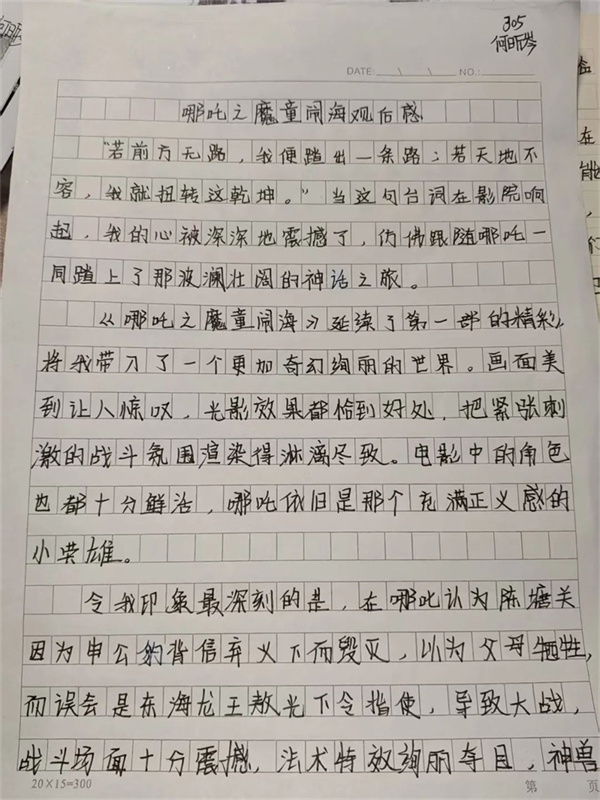 305
何昕岑
DATE: \ \ NO.:
哪吒之魔童闹海观后感
“若前方无路，我便踏出一条路；若天地不
容，我就扭转这乾坤。”当这句台词在影院响
起，我的心被深深地震撼了，仿佛跟随哪吒一
同踏上了那波澜壮阔的神话之旅。
《哪吒之魔童闹海》延续了第一部的精彩，
将我带入了一个更加奇幻绚丽的世界。画面美
到让人惊叹，光影效果都恰到好处，把紧张刺
激的战斗氛围渲染得淋漓尽致。电影中的角色
也都十分鲜活，哪吒依旧是那个充满正义感的
小英雄。
令我印象最深刻的是，在哪吒认为陈塘关
因为申公豹背信弃义下而毁灭，以为父母牺牲，
而误会是东海龙王敖光下令指使，导致大战，
战斗场面十分震撼，法术特效绚丽夺目，神兽
20×15=300
第 页